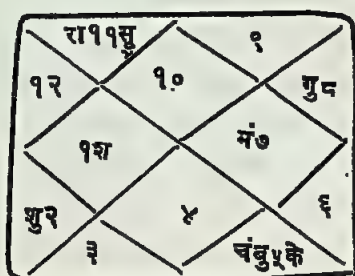 रा११सू
९
१२
१०
गु८
१श
मं७
शु२
४
६
३
चंबु५के